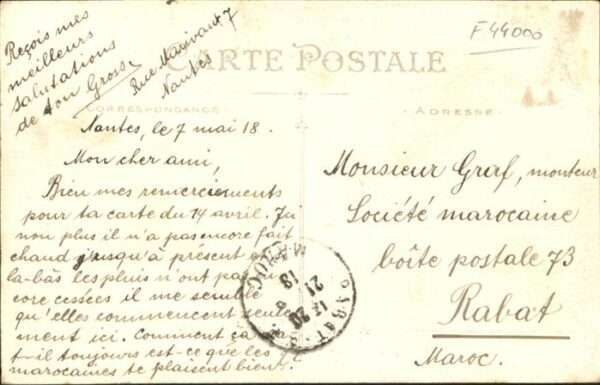 F44000
Reçois mes
meilleurs
salutations
de ton Grosse
Rue Marivaux 7
Nantes
CARTE POSTALE
CORRESPONDANCE
ADRESSE
Nantes, le 7 mai 18.
Mon cher ami,
Bien mes remerciements
pour ta carte du 14 avril. Ici
non plus il n'a pas encore fait
chaud jusqu'à présent
la-bâs les pluis n'ont pas
core cessées il me semble
qu'elles commencent seule
ment ici. Comment ça
t-il toujours est-ce que les
marocaines te plaisent bien
Monsieur Graf, monteur
Société marocaine
boîte postale 73
Rabat
Maroc.
RABAT
MAROC
21
18